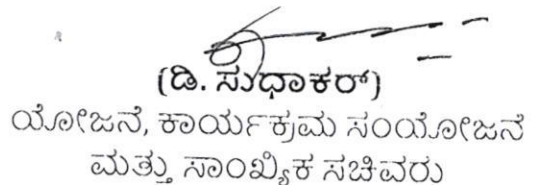 (ಡಿ. ಸುಧಾಕರ್)
ಯೋಜನೆ, ಕಾರ್ಯಕ್ರಮ ಸಂಯೋಜನೆ
ಮತ್ತು ಸಾಂಖ್ಯಿಕ ಸಚಿವರು